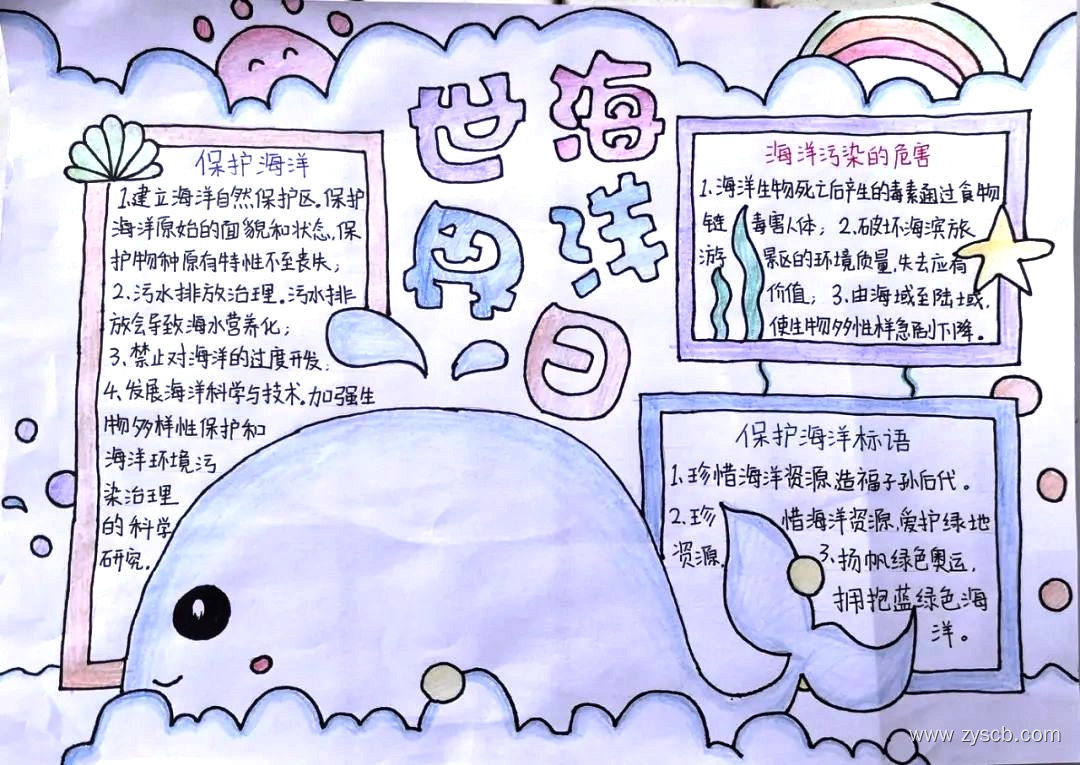 世界
海洋日
保护海洋
1.建立海洋自然保护区。保护
海洋原始的面貌和状态,保
护物种原有特性不至丧失;
2.污水排放治理。污水排
放会导致海水营养化;
3.禁止对海洋的过度开发;
4.发展海洋科学与技术。加强生
物多样性保护和
海洋环境污
染治理
的科学
研究.
海洋污染的危害
1.海洋生物死亡后产生的毒素通过食物
链毒害人体; 2.破坏海滨旅
游景区的环境质量,失去应有
价值; 3.由海域至陆域,
使生物多性样急剧下降。
保护海洋标语
1.珍惜海洋资源 造福子孙后代。
2.珍惜海洋资源,爱护绿地
资源, 3.扬帆绿色奥运,
拥抱蓝绿色海
洋。
www.zyscb.com